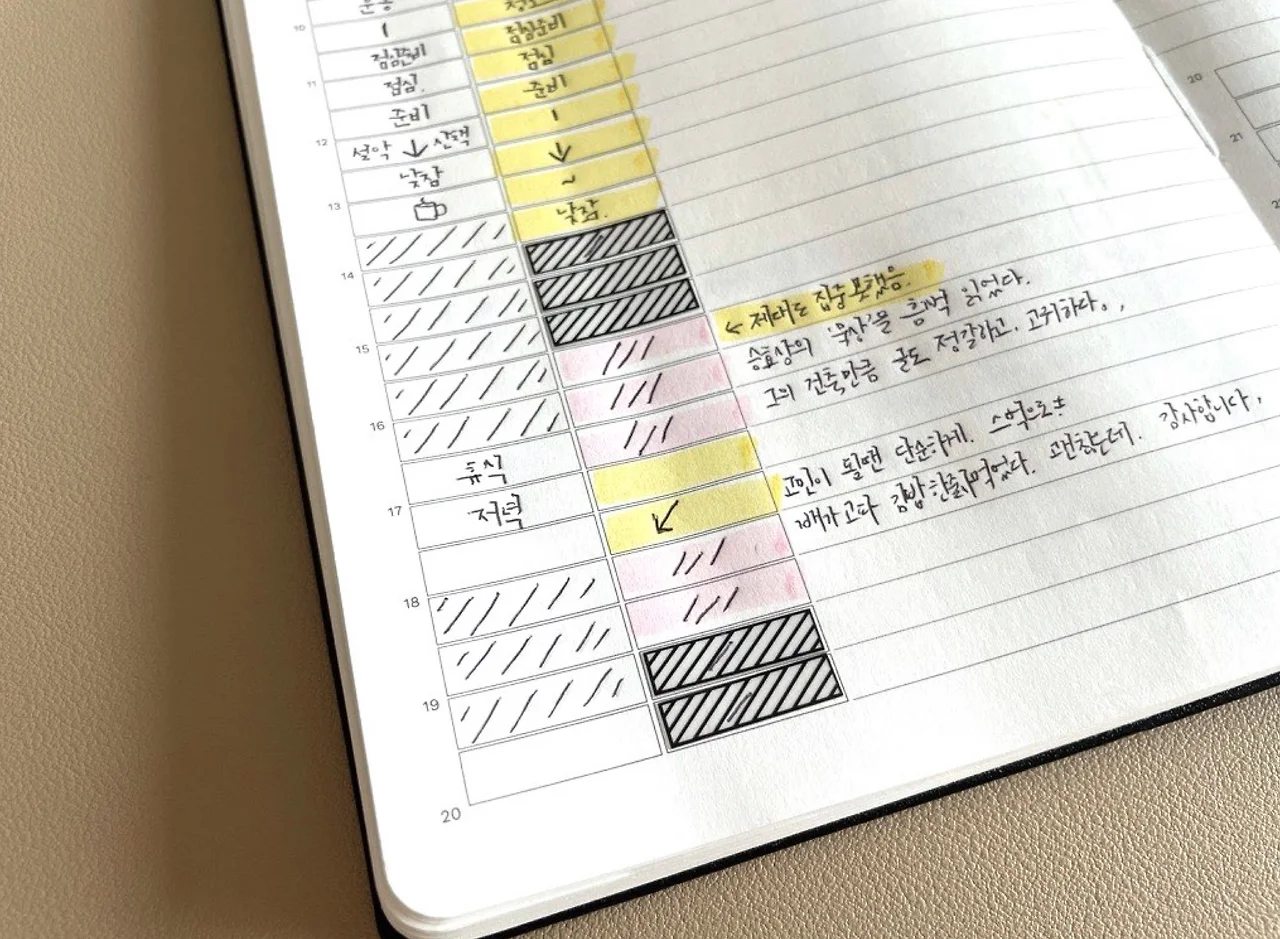 운동
10
점심준비
점심준비
점심
11
점심.
준비
준비
12
설악 ↓ 산책
↓
낮잠
~
13
낮잠.
14
← 제대로 집중 못했음.
15
승효상의 '묵상'을 흠뻑 읽었다.
그의 건축만큼 글도 정갈하고. 고귀하다.,
16
휴식
고민이 될땐 단순하게. 스억으로±
저녁
17
↙
배가고파 김밥한줄사먹었다. 괜찮은데. 감사합니다,
18
19
20
20
21